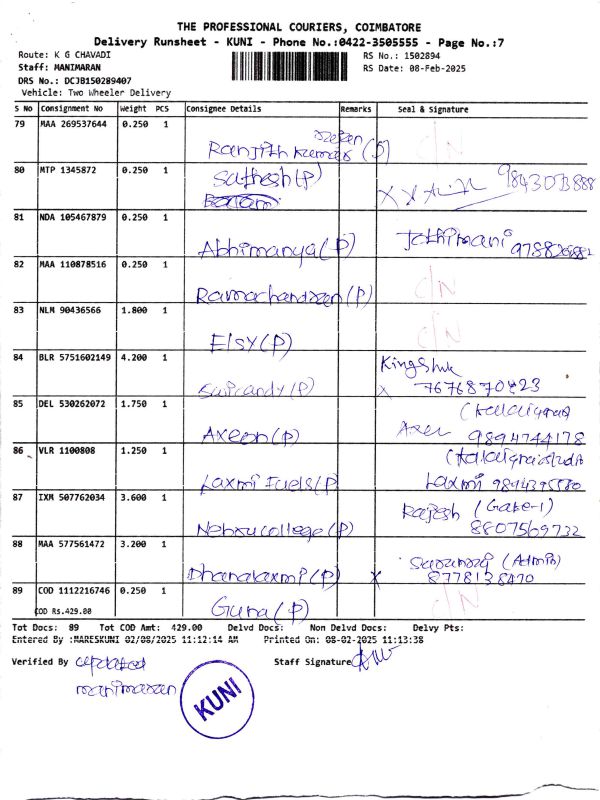 THE PROFESSIONAL COURIERS, COIMBATORE
Delivery Runsheet - KUNI - Phone No.:0422-3505555 - Page No.:7
Route: K G CHAVADI RS No.: 1502894
Staff: MANIMARAN RS Date: 08-Feb-2025
DRS No.: DCJB150289407
Vehicle: Two Wheeler Delivery
S No Consignment No Weight PCS Consignee Details Remarks Seal & Signature
79 MAA 269537644 0.250 1
Ranjith Kumar (P) D/N
80 MTP 1345872 0.250 1
Sathesh (P)
81 NDA 105467879 0.250 1
Abhimanya (P) Jothimani
82 MAA 110878516 0.250 1
Ramachandran (P) D/N
83 NLM 90436566 1.800 1
Elsy (P) D/N
84 BLR 5751602149 4.200 1
Kingshuk
85 DEL 530262072 1.750 1
Axeon (P) 9894744178
86 VLR 1100808 1.250 1
Laxmi Fuels (P Laxmi
87 IXM 507762034 3.600 1
Rajesh (Gate-1)
Nehru college (P) 8807569732
88 MAA 577561472 3.200 1
(Admin)
Dhanalaxmi (P) X
89 COD 1112216746 0.250 1
COD Rs.429.00 Guna (P) D/N
Tot Docs: 89 Tot COD Amt: 429.00 Delvd Docs: Non Delvd Docs: Delvy Pts:
Entered By :MARESKUNI 02/08/2025 11:12:14 AM Printed On: 08-02-2025 11:13:38
Verified By updated Staff Signature
manimaran
KUNI